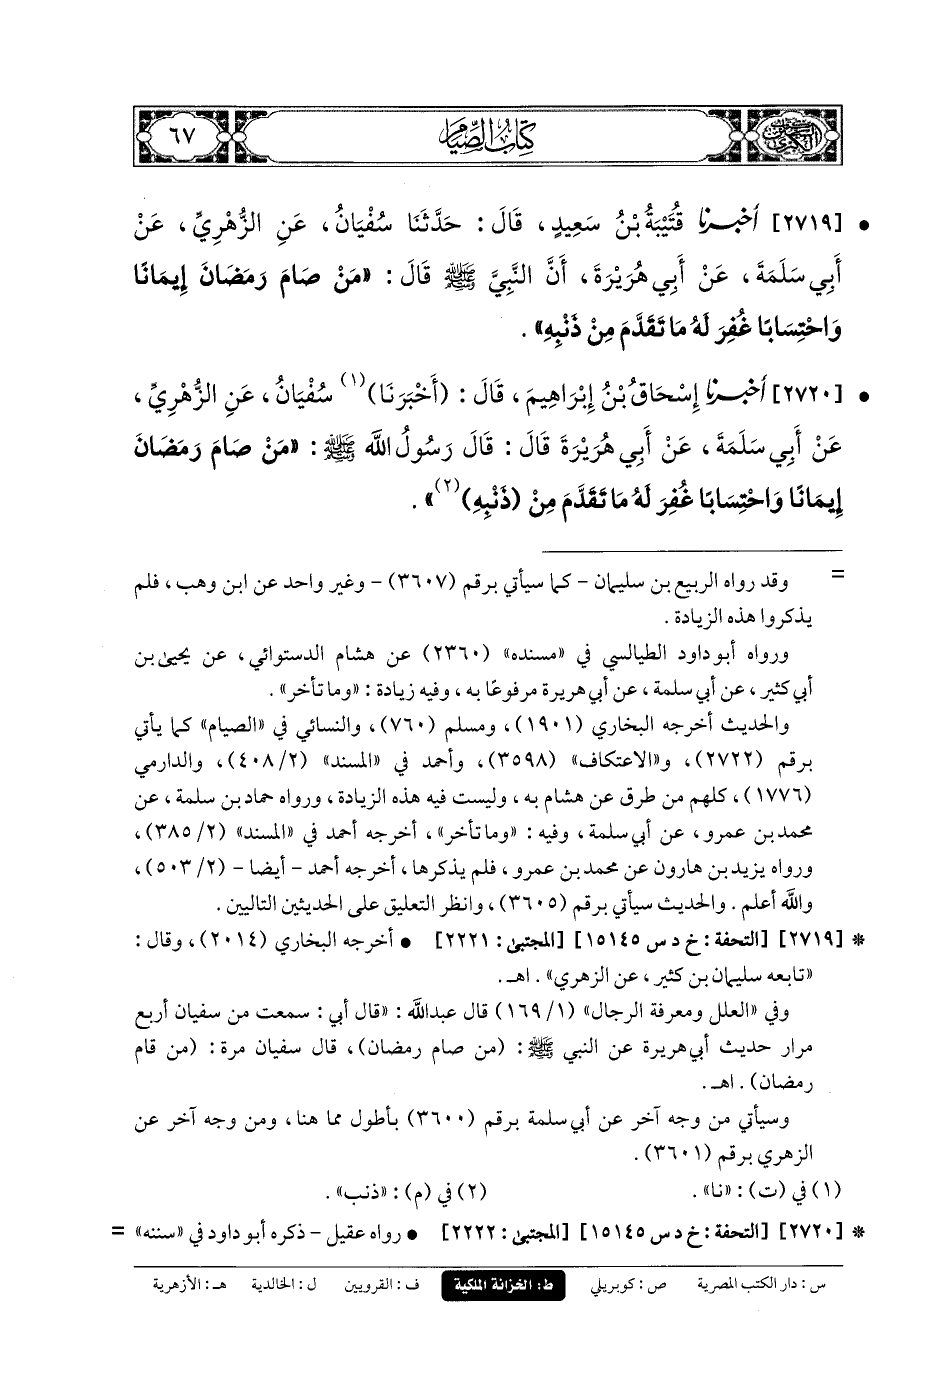 السنن الكبرى
كتاب الصيام
٦٧
• [٢٧١٩] أخبرنا قُتَيْبَةُ بْنُ سَعِيدٍ، قَالَ: حَدَّثَنَا سُفْيَانُ، عَنِ الزُّهْرِيِّ، عَنْ
أَبِي سَلَمَةَ، عَنْ أَبِي هُرَيْرَةَ، أَنَّ النَّبِيَّ ﷺ قَالَ: «مَنْ صَامَ رَمَضَانَ إِيمَانًا
وَاحْتِسَابًا غُفِرَ لَهُ مَا تَقَدَّمَ مِنْ ذَنْبِهِ».
• [٢٧٢٠] أخبرنا إِسْحَاقُ بْنُ إِبْرَاهِيمَ، قَالَ: (أَخْبَرَنَا)(١) سُفْيَانُ، عَنِ الزُّهْرِيِّ،
عَنْ أَبِي سَلَمَةَ، عَنْ أَبِي هُرَيْرَةَ قَالَ: قَالَ رَسُولُ اللَّهِ ﷺ: «مَنْ صَامَ رَمَضَانَ
إِيمَانًا وَاحْتِسَابًا غُفِرَ لَهُ مَا تَقَدَّمَ مِنْ (ذَنْبِهِ)(٢)».
= وقد رواه الربيع بن سليمان - كما سيأتي برقم (٣٦٠٧) - وغير واحد عن ابن وهب، فلم
يذكروا هذه الزيادة.
ورواه أبو داود الطيالسي في «مسنده» (٢٣٦٠) عن هشام الدستوائي، عن يحيى بن
أبي كثير، عن أبي سلمة، عن أبي هريرة مرفوعًا به، وفيه زيادة: «وما تأخر».
والحديث أخرجه البخاري (١٩٠١)، ومسلم (٧٦٠)، والنسائي في «الصيام» كما يأتي
برقم (٢٧٢٢)، و«الاعتكاف» (٣٥٩٨)، وأحمد في «المسند» (٢/ ٤٠٨)، والدارمي
(١٧٧٦)، كلهم من طرق عن هشام به، وليست فيه هذه الزيادة، ورواه حماد بن سلمة، عن
محمد بن عمرو، عن أبي سلمة، وفيه: «وما تأخر»، أخرجه أحمد في «المسند» (٢/ ٣٨٥)،
ورواه يزيد بن هارون عن محمد بن عمرو، فلم يذكرها، أخرجه أحمد - أيضا - (٢/ ٥٠٣)،
والله أعلم. والحديث سيأتي برقم (٣٦٠٥)، وانظر التعليق على الحديثين التاليين.
* [٢٧١٩] [التحفة: خ د س ١٥١٤٥] [المجتبى: ٢٢٢١] • أخرجه البخاري (٢٠١٤)، وقال:
«تابعه سليمان بن كثير، عن الزهري». اهـ.
وفي «العلل ومعرفة الرجال» (١/ ١٦٩) قال عبدالله: «قال أبي: سمعت من سفيان أربع
مرار حديث أبي هريرة عن النبي ﷺ: (من صام رمضان)، قال سفيان مرة: (من قام
رمضان). اهـ.
وسيأتي من وجه آخر عن أبي سلمة برقم (٣٦٠٠) بأطول مما هنا، ومن وجه آخر عن
الزهري برقم (٣٦٠١).
(١) في (ت): «نا». (٢) في (م): «ذنب».
* [٢٧٢٠] [التحفة: خ د س ١٥١٤٥] [المجتبى: ٢٢٢٢] • رواه عقيل - ذكره أبو داود في «سننه» =
س: دار الكتب المصرية ص: كوبريلي ط: الخزانة الملكية ف: القرويين ل: الخالدية هـ: الأزهرية